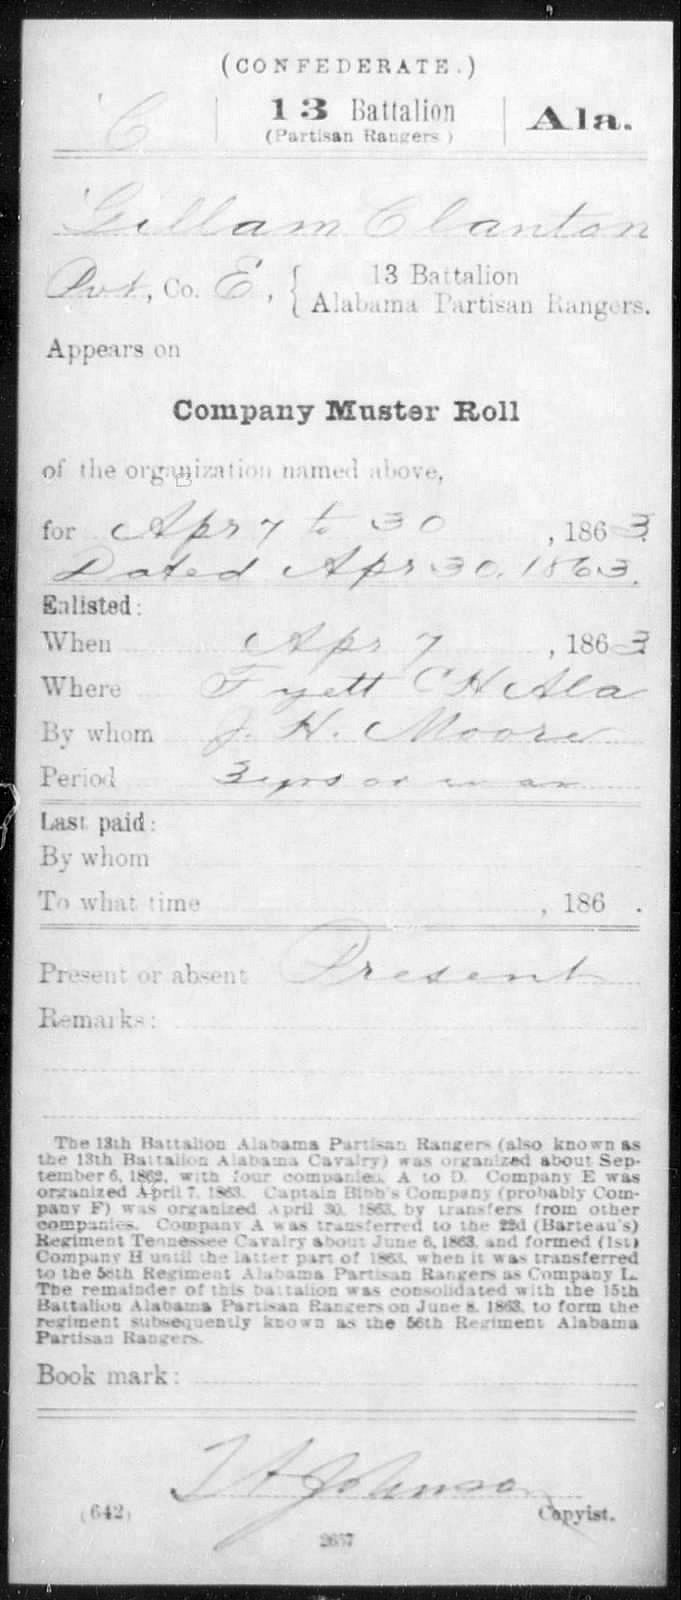 (CONFEDERATE.)
C | 13 Battalion | Ala.
(Partisan Rangers)
Gillam Clanton
Pvt, Co. E, { 13 Battalion
Alabama Partisan Rangers.
Appears on
Company Muster Roll
of the organization named above,
for Apr 7 to 30, 1863.
Dated Apr 30, 1863.
Enlisted:
When Apr 7, 1863
Where Fyett C H Ala
By whom J. H. Moore
Period 3 yrs or war
Last paid:
By whom
To what time , 186 .
Present or absent Present
Remarks:
The 13th Battalion Alabama Partisan Rangers (also known as
the 13th Battalion Alabama Cavalry) was organized about Sep-
tember 6, 1862, with four companies, A to D. Company E was
organized April 7, 1863. Captain Bibb's Company (probably Com-
pany F) was organized April 30, 1863, by transfers from other
companies. Company A was transferred to the 22d (Barteau's)
Regiment Tennessee Cavalry about June 6, 1863, and formed (1st)
Company H until the latter part of 1863, when it was transferred
to the 56th Regiment Alabama Partisan Rangers as Company L.
The remainder of this battalion was consolidated with the 15th
Battalion Alabama Partisan Rangers on June 8, 1863, to form the
regiment subsequently known as the 56th Regiment Alabama
Partisan Rangers.
Book mark:
Johnson
(642) Copyist.
2657